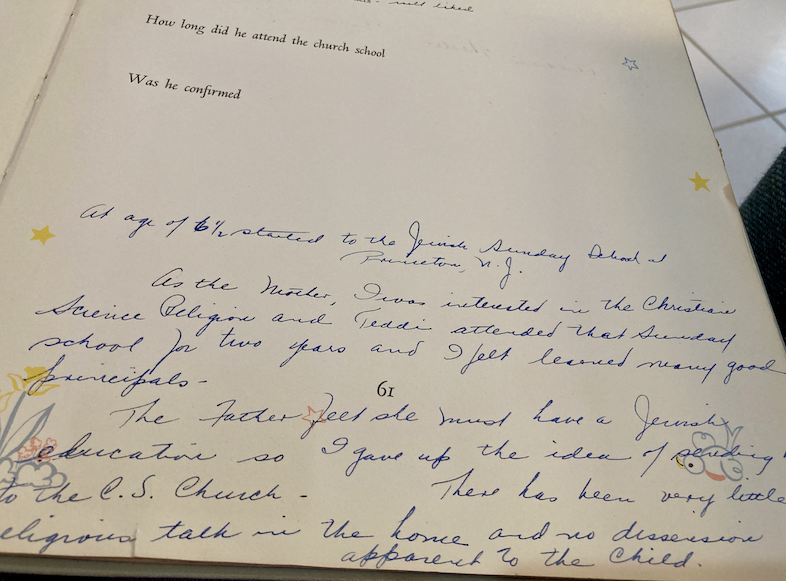 well liked
How long did he attend the church school
Was he confirmed
At age of 6½ started to the Jewish Sunday School at
Princeton, N.J.
As the Mother, I was interested in the Christian
Science Religion and Teddi attended that Sunday
school for two years and I felt learned many good
principals-
61
The Father feet she must have a Jewish
education so I gave up the idea of sending
to the C.S. Church -    There has been very little
eligious talk in the home and no dissension
apparent to the child.